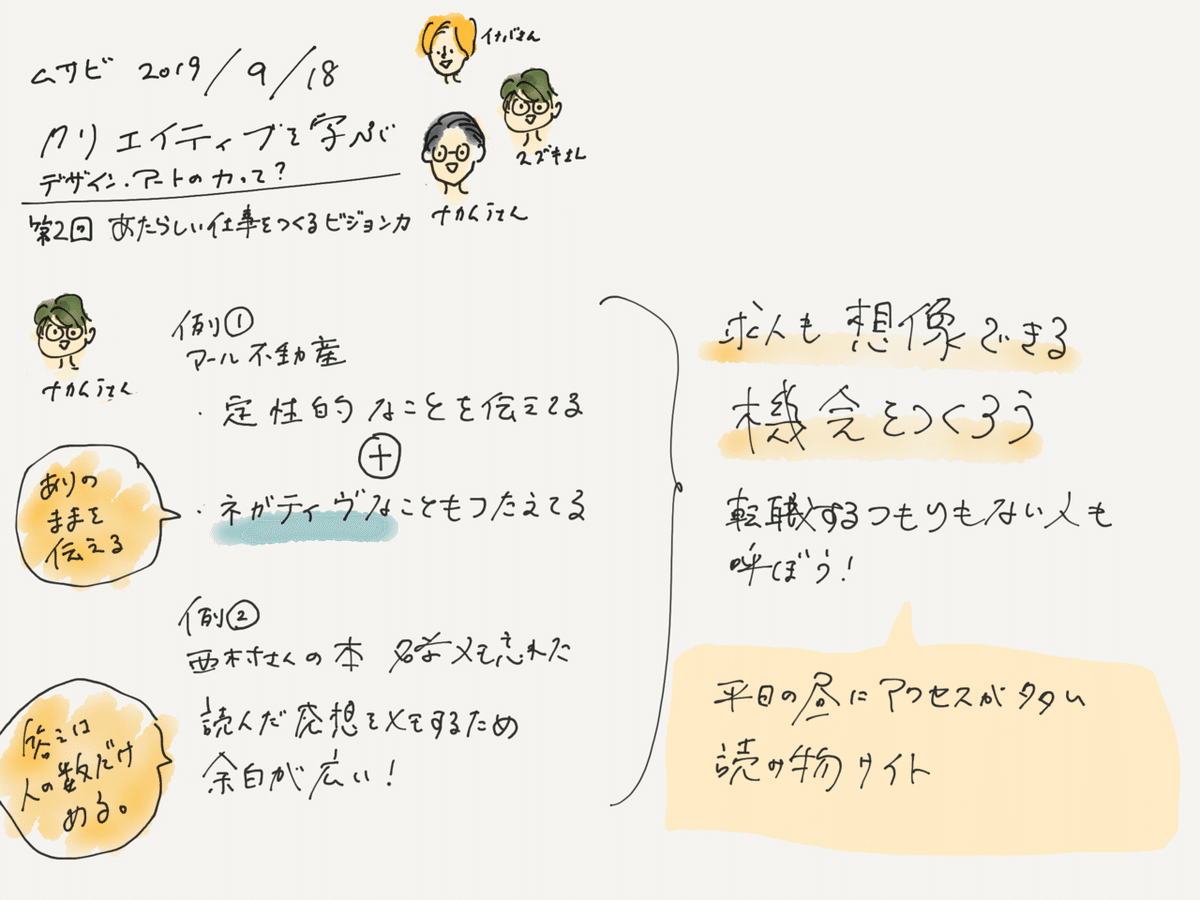 ムサビ 2019/9/18
クリエイティブを学ぶ
デザイン・アートの力って?
第2回 あたらしい仕事をつくるビジョン力
イナバさん
スズキさん
ナカムラさん
ナカムラさん
例①
アール不動産
・定性的なことを伝えてる
+
・ネガティヴなこともつたえてる
ありの
ままを
伝える
例②
西村さんの本 名前メモ忘れた
読んだ発想をメモするため
余白が広い!
答えは
人の数だけ
ある。
求人も想像できる
機会をつくろう
転職するつもりもない人も
呼ぼう!
平日の昼にアクセスが
読み物サイト